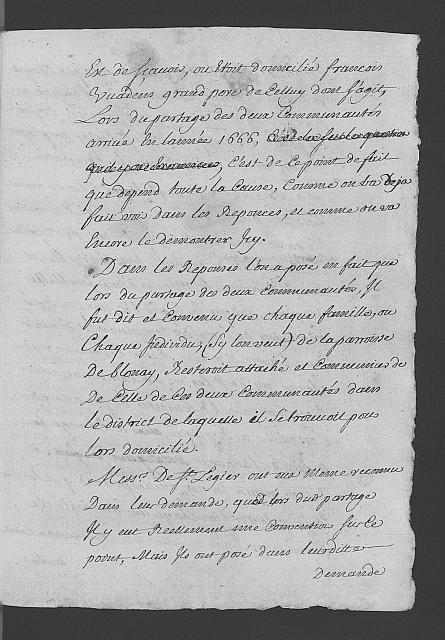 Est de sçavoir, ou etoit domicilié françois
Vuadens grand pere de Celluy dont s'agit,
Lors du partage des deux Communautés
arrivé En lannée 1666, C'est la seule question
C'est de Ce point de fait
que depend toute la Cause, Comme on l'a Deja
fait voir dans les Reponces, et comme on va
Encore le demontrer Icy.
Dans les Reponses l'on a posé en fait que
lors du partage des deux Communautés, Il
fut dit et Convenu que chaque famille, ou
Chaque Individu, (s'y l'on veut) de la parroisse
De Blonay, Resteroit attaché et Communier de
De Celle de Ces deux Communautés dans
le district de laquelle il se trouvoit pour
lors domicilié.
Mess.rs De S.t Legier ont eux meme reconnu
Dans leur demande, que lors dud.t partage
Il y eut Reellement une Convention sur Ce
point, Mais Ils ont posé dans leurditte
Demande